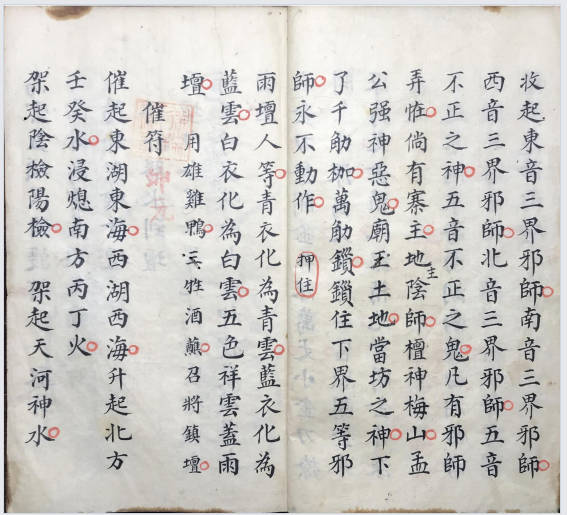 收起東音三界邪師南音三界邪師
西音三界邪師北音三界邪師五音
不正之神五音不正之鬼凡有邪師
弄恠倘有寨主地主陰師檀神梅山孟
公强神惡鬼廟王土地當坊之神下
了千觔枷萬觔鎖鎖住下界五等邪
師永不動作 押住
雨壇人等青衣化為青雲藍衣化為
藍雲白衣化為白雲五色祥雲蓋雨
壇 用雄雞鴨三牲酒召將鎮壇
催符
催起東湖東海西湖西海升起北方
壬癸水浸熄南方丙丁火
架起陰檢陽檢 架起天河神水